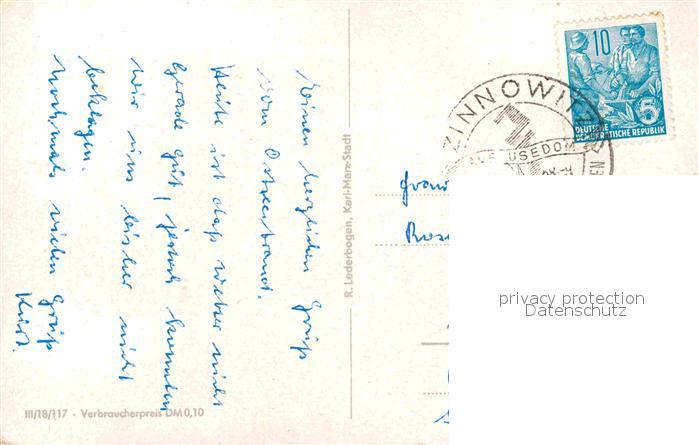 Einen herzlichen Gruß
vom Ostseestrand.
Heute ist das Wetter nicht
gerade gut, jedoch konnten
wir uns bisher nicht
beklagen.
Nochmals vielen Gruß
Kurt.
III/18/117 · Verbraucherpreis DM 0,10
R. Lederbogen, Karl-Marx-Stadt
ZINNOWITZ
AUF USEDOM
10
5
DEUTSCHE
DEMOKRATISCHE REPUBLIK
privacy protection
Datenschutz